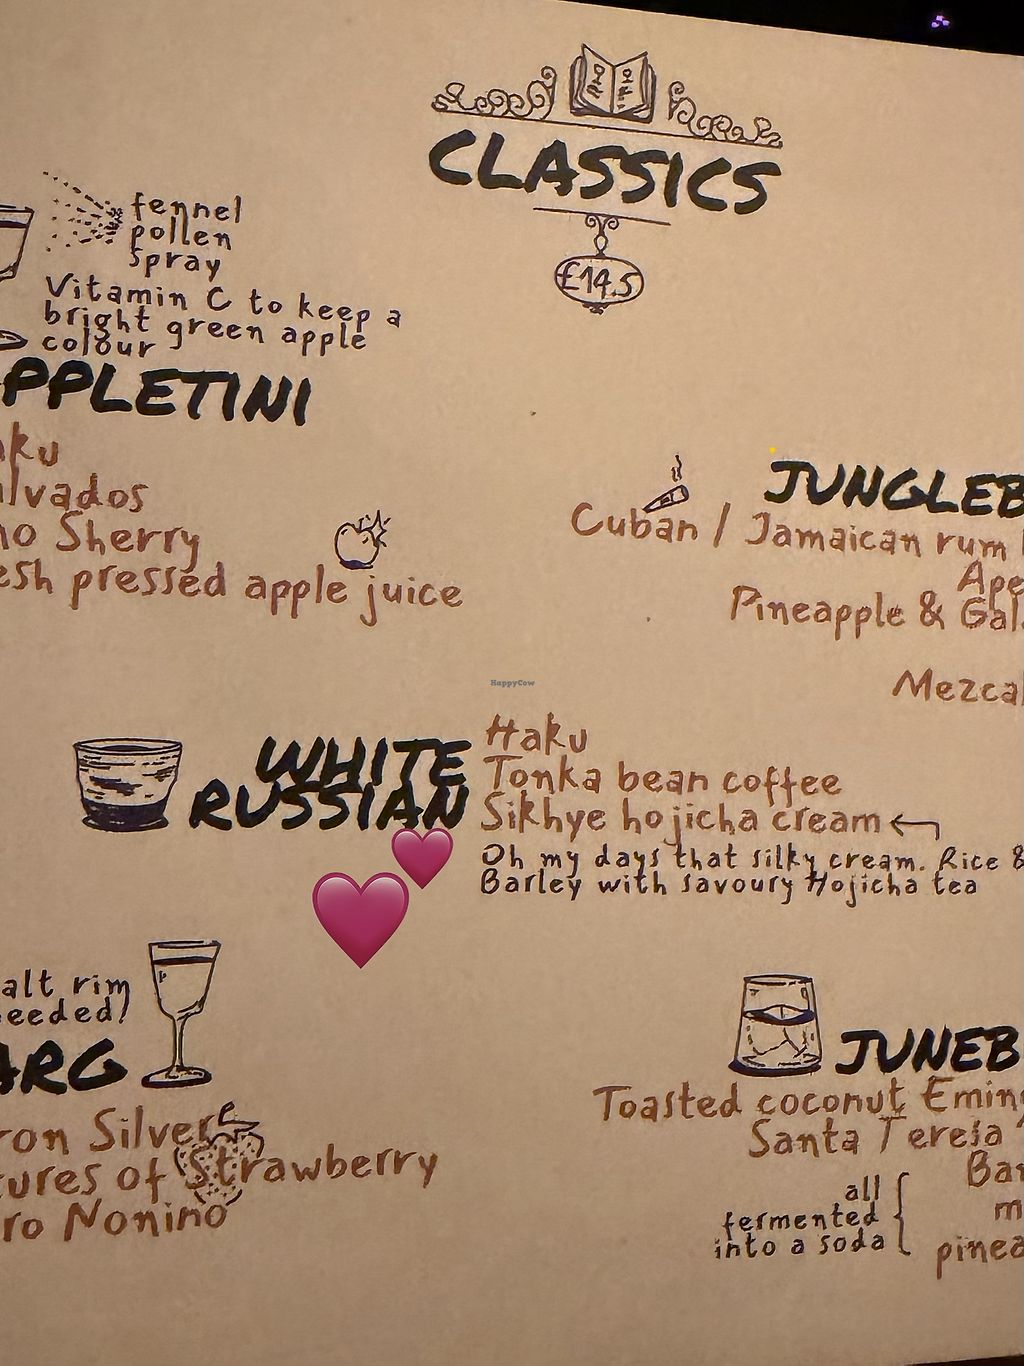 CLASSICS
£14.5
fennel
pollen
spray
Vitamin C to keep a
bright green apple
colour
PPLETINI
aku
alvados
no Sherry
esh pressed apple juice
JUNGLEB
Cuban / Jamaican rum
Ape
Pineapple & Gal
Mezcal
HappyCow
WHITE
RUSSIAN
Haku
Tonka bean coffee
Sikhye hojicha cream
Oh my days that silky cream. Rice &
Barley with savoury Hojicha tea
alt rim
needed!
ARG
ron Silver
tures of Strawberry
ro Nonino
JUNEB
Toasted coconut Emin
Santa Teresa
Ba
m
pinea
all
fermented
into a soda